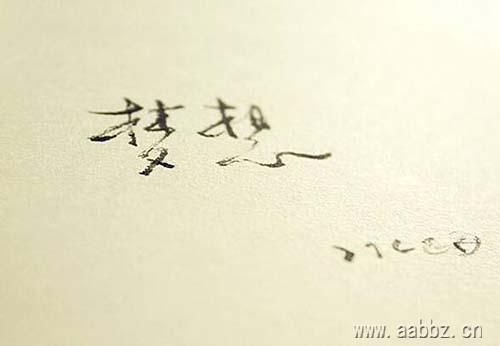 梦想
www.aabbz.cn